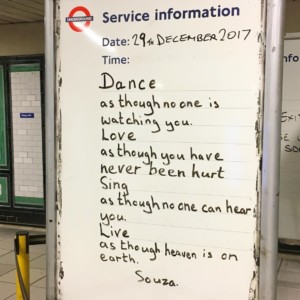 UNDERGROUND
Service information
Date: 29th DECEMBER 2017
Time:
Dance
as though no one is
watching you.
Love
as though you have
never been hurt
Sing
as though no one can hear
you.
Live
as though heaven is on
earth.
Souza.